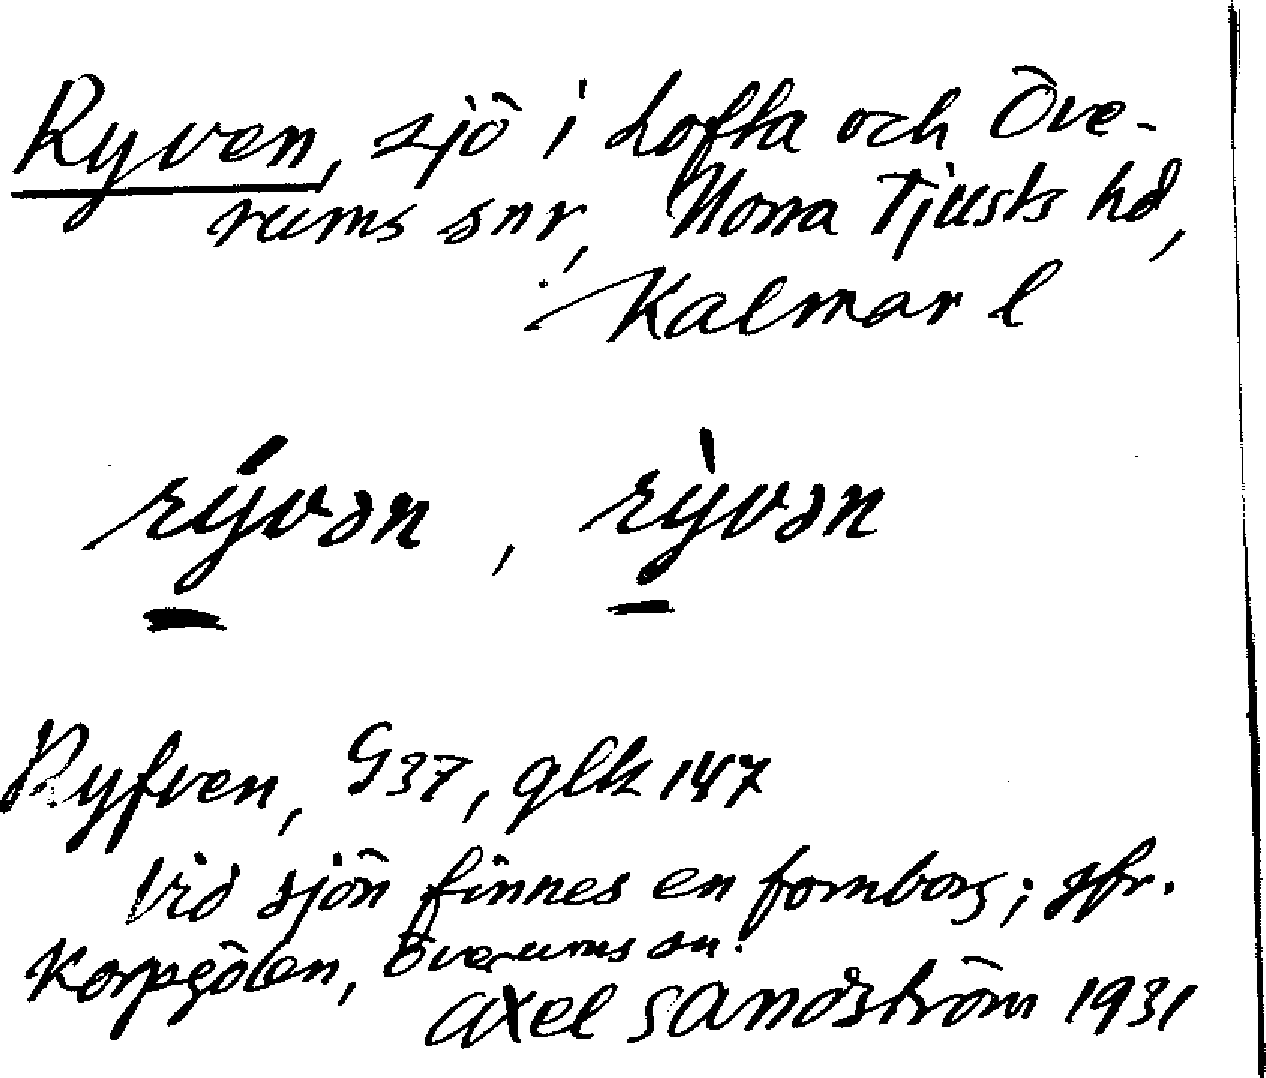 Ryven, sjö i Lofta och Öve-
rums snr, Norra Tjusts hd,
Kalmar l
rývən, rỳvən
Ryfven, G37, glk 147
Vid sjön finnes en fornborg; jfr.
Korpgölen, Överums sn.
Axel Sandström 1931